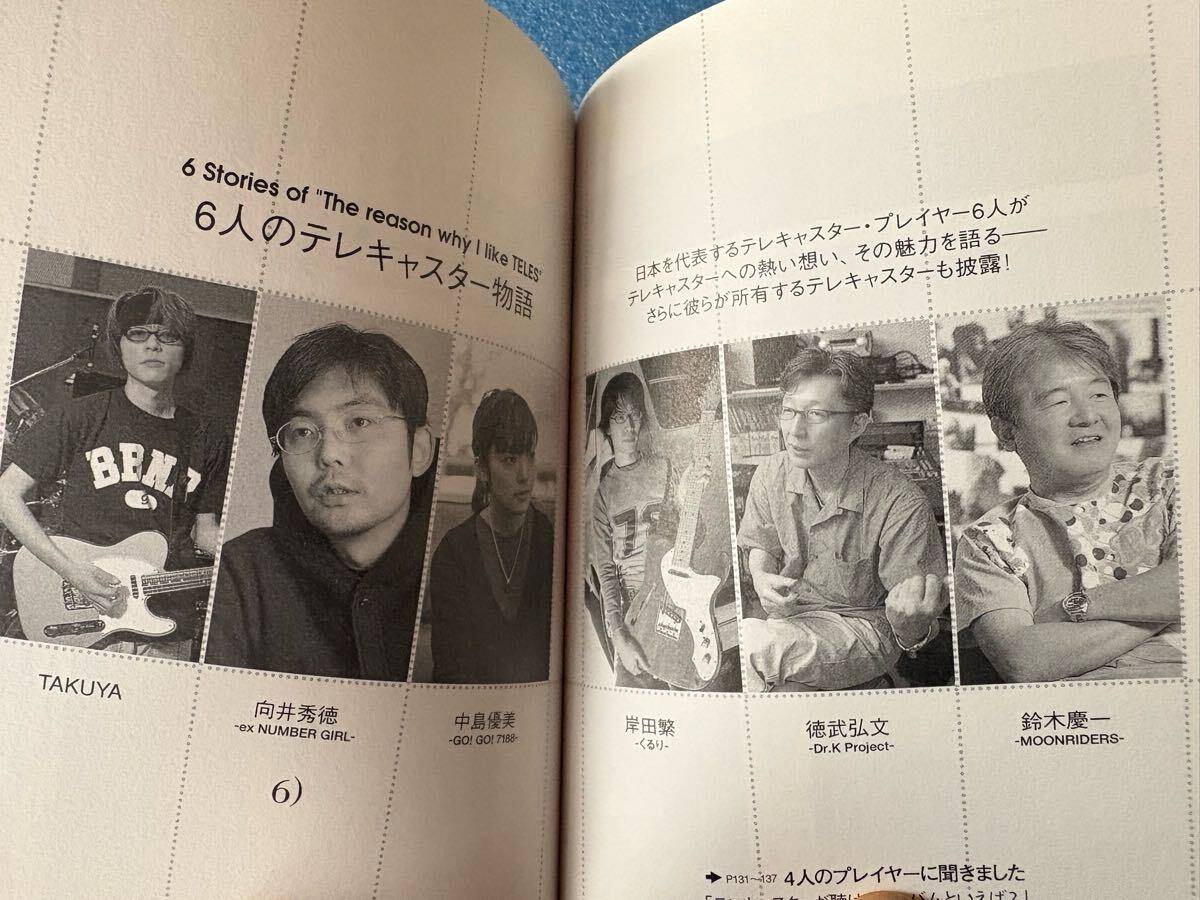 6 Stories of "The reason why I like TELES"
6人のテレキャスター物語
日本を代表するテレキャスター・プレイヤー6人が
テレキャスターへの熱い想い、その魅力を語る——
さらに彼らが所有するテレキャスターも披露!
TAKUYA
向井秀徳
-ex NUMBER GIRL-
中島優美
-GO! GO! 7188-
岸田繁
-くるり-
徳武弘文
-Dr.K Project-
鈴木慶一
-MOONRIDERS-
6)
➡ P131〜137 4人のプレイヤーに聞きました